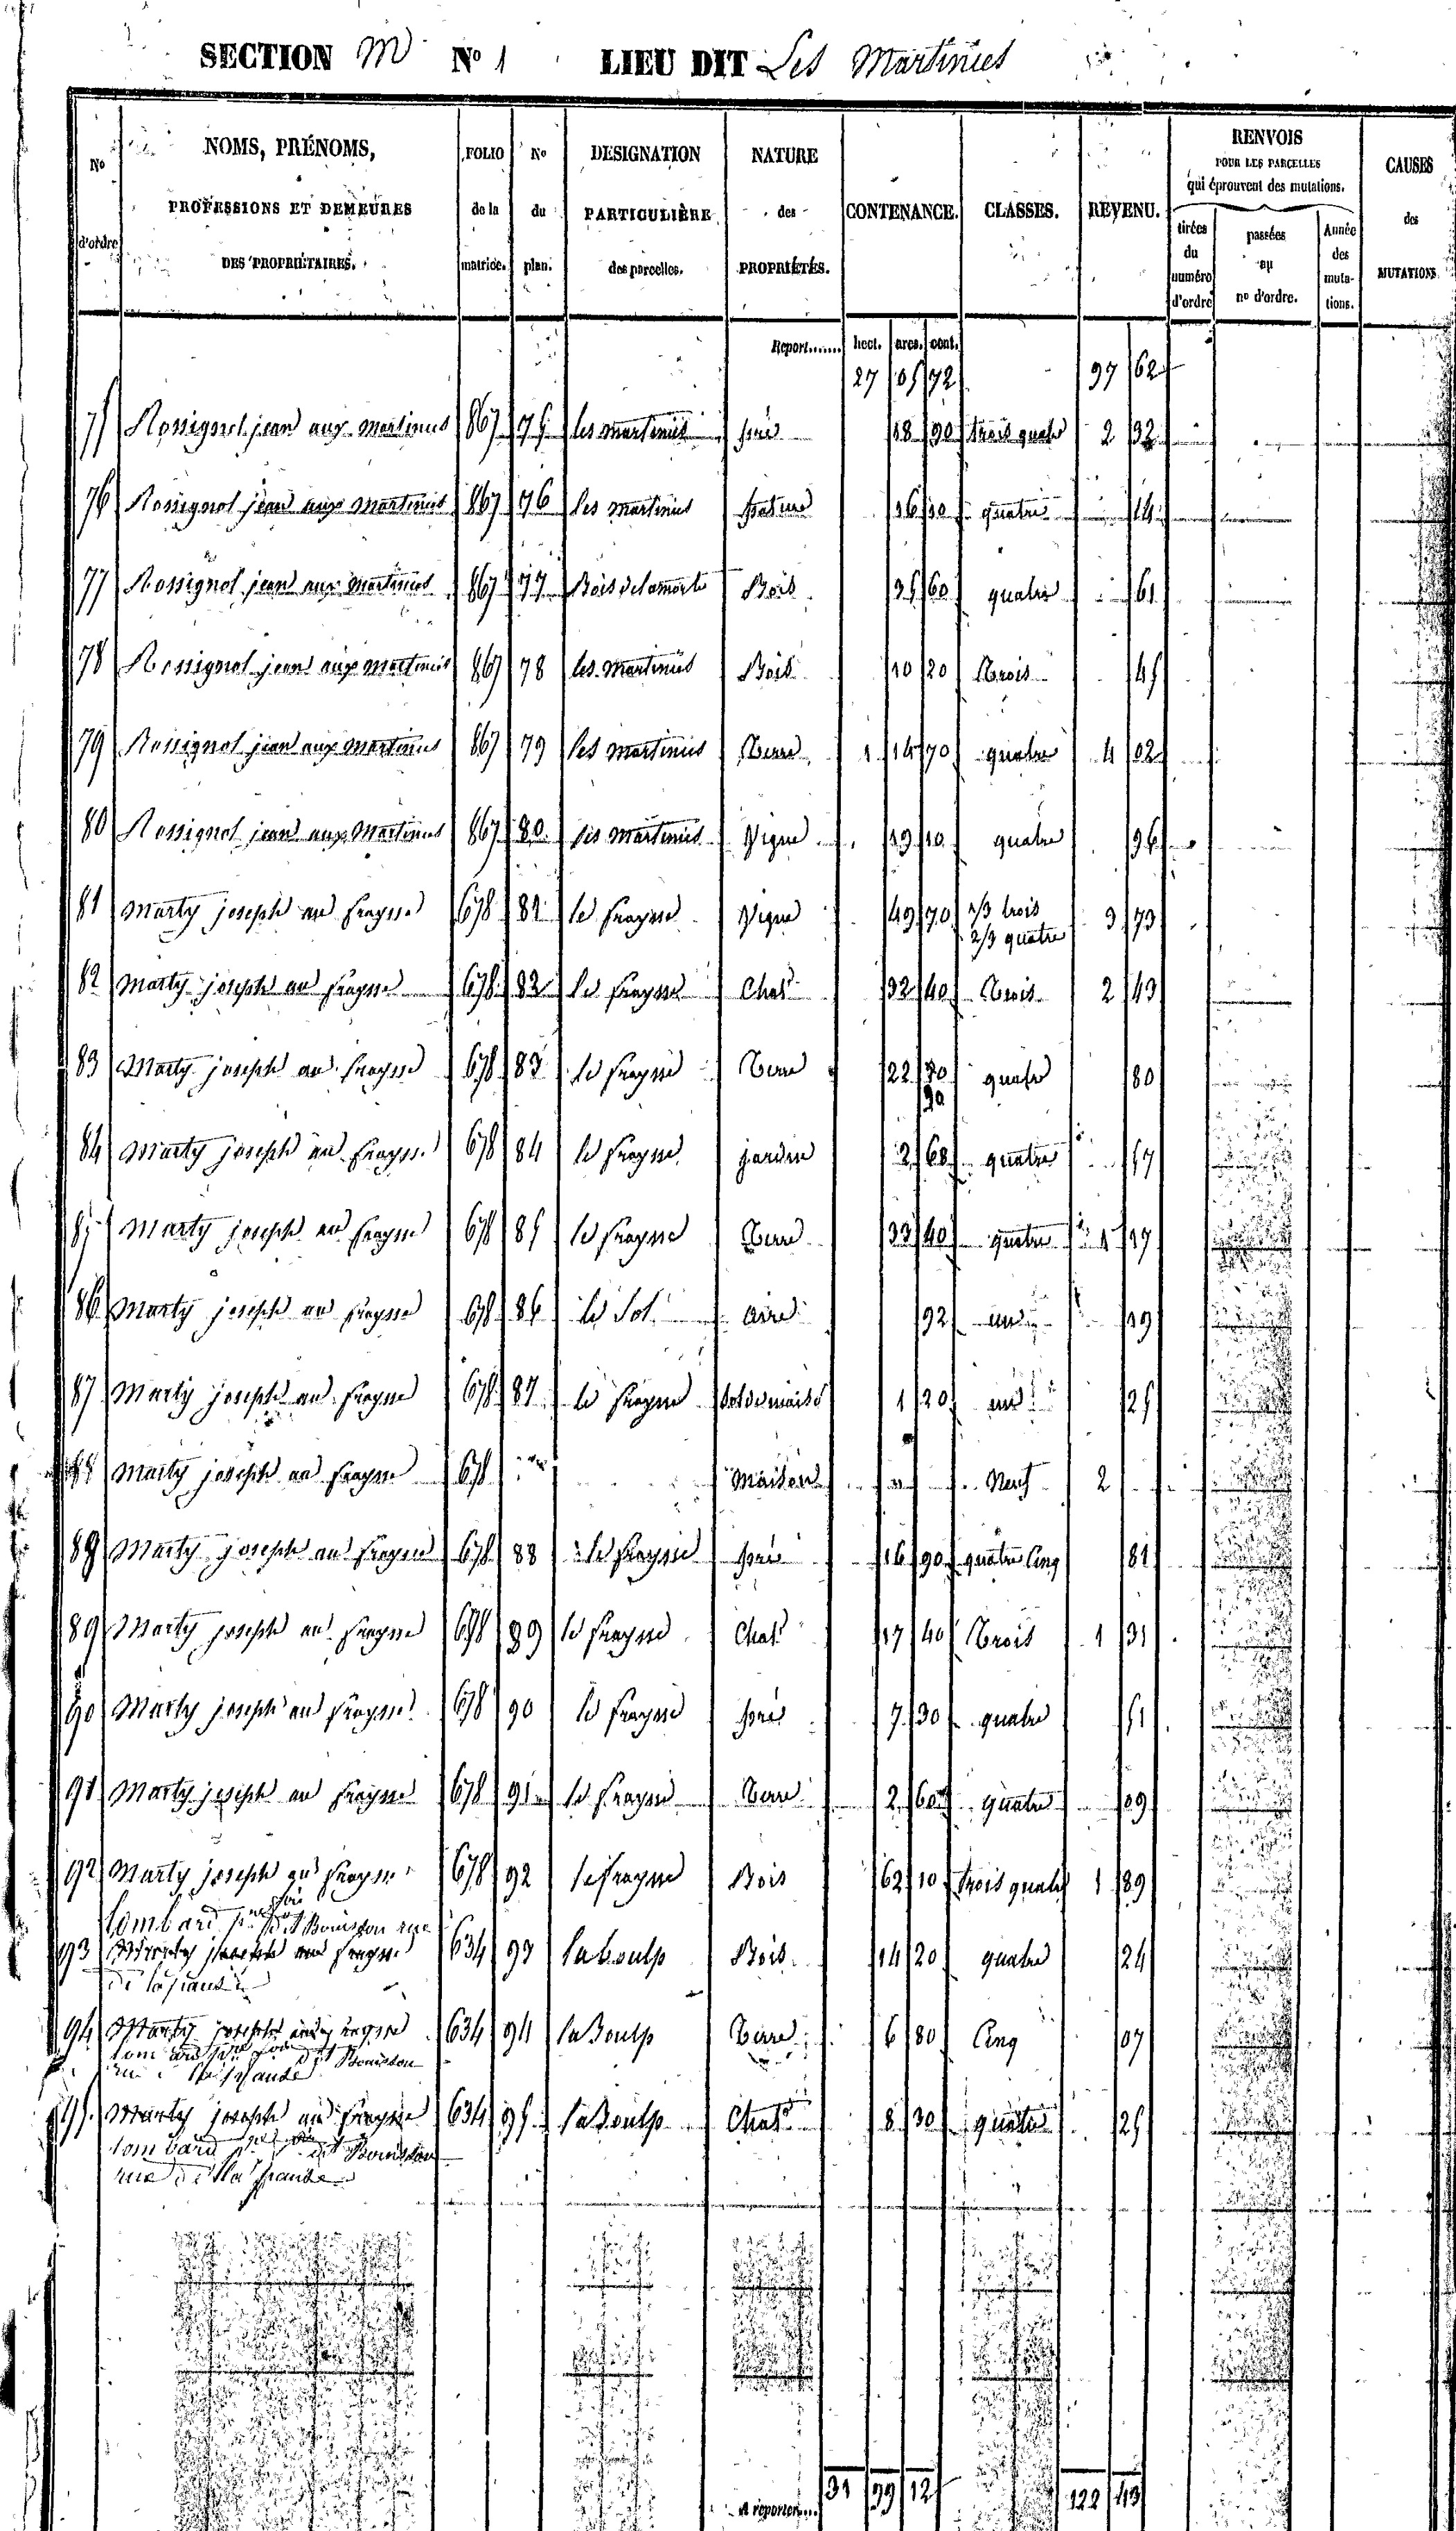 SECTION M N° 1 LIEU DIT Les Martinies
N° d'ordre
NOMS, PRÉNOMS, PROFESSIONS ET DEMEURES DES PROPRIÉTAIRES.
FOLIO de la matrice.
N° du plan.
DESIGNATION PARTICULIÈRE des parcelles.
NATURE des PROPRIÉTÉS.
CONTENANCE.
CLASSES.
REVENU.
RENVOIS POUR LES PARCELLES qui éprouvent des mutations.
tirées du numéro d'ordre
passées au n° d'ordre.
Année des muta-tions.
CAUSES des MUTATIONS
Report....... hect. ares. cent.
27 05 72 97 62
75 Rossignol jean aux martinies 867 75 les martinies pré 18 90 trois quatre 2 32
76 Rossignol jean aux martinies 867 76 les martinies pature 36 30 quatre 14
77 Rossignol jean aux martinies 867 77 Bois delamorte Bois 35 60 quatre 61
78 Rossignol jean aux martinies 867 78 les martinies Bois 10 20 Trois 45
79 Rossignol jean aux martinies 867 79 les martinies Terre 1 14 70 quatre 4 02
80 Rossignol jean aux Martinies 867 80 les martinies Vigne 19 10 quatre 96
81 Marty joseph au frayssé 678 81 le frayssé Vigne 49 70 1/3 trois 2/3 quatre 3 73
82 Marty joseph au frayssé 678 82 le frayssé Chat 32 40 Trois 2 43
83 Marty joseph au frayssé 678 83 le frayssé Terre 22 90 quatre 80
84 Marty joseph au frayssé 678 84 le frayssé jardin 2 68 quatre 17
85 Marty joseph au frayssé 678 85 le frayssé Terre 33 40 quatre 1 17
86 Marty joseph au frayssé 678 86 le Sol aire 92 un 19
87 Marty joseph au frayssé 678 87 le frayssé sol de maison 1 20 un 25
Marty joseph au frayssé 678 Maison Neuf 2
88 Marty joseph au frayssé 678 88 le frayssé pré 16 90 quatre Cinq 81
89 Marty joseph au frayssé 678 89 le frayssé Chat 17 40 Trois 1 31
90 Marty joseph au frayssé 678 90 le frayssé pré 7 30 quatre 51
91 Marty joseph au frayssé 678 91 le frayssé Terre 2 60 quatre 09
92 Marty joseph au frayssé 678 92 le frayssé Bois 62 10 trois quatre 1 89
Lombard dit Bouisson rue
93 Marty joseph au frayssé 634 93 la boulp Bois 14 20 quatre 24
de la
94 Marty joseph au frayssé 634 94 la Boulp Terre 6 80 Cinq 07
dit Bouisson
95 Marty joseph au frayssé 634 95 la Boulp Chat 8 30 quatre 25
Lombard dit Bouisson
rue de la
A reporter.... 31 99 12 122 43